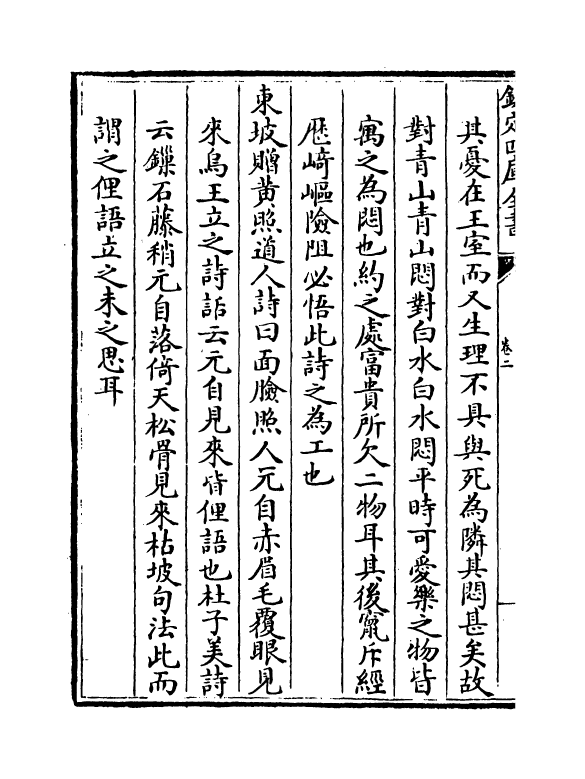 欽定四庫全書
卷二
其憂在王室而又生理不具與死為隣其悶甚矣故
對青山青山悶對白水白水悶平時可愛樂之物皆
寓之為悶也約之處富貴所欠二物耳其後竄斥經
歷﨑嶇險阻必悟此詩之為工也
東坡贈黄照道人詩曰面臉照人元自赤眉毛覆眼見
來烏王立之詩話云元自見來皆俚語也杜子美詩
云鏁石藤稍元自落倚天松骨見來枯坡句法此而
謂之俚語立之未之思耳